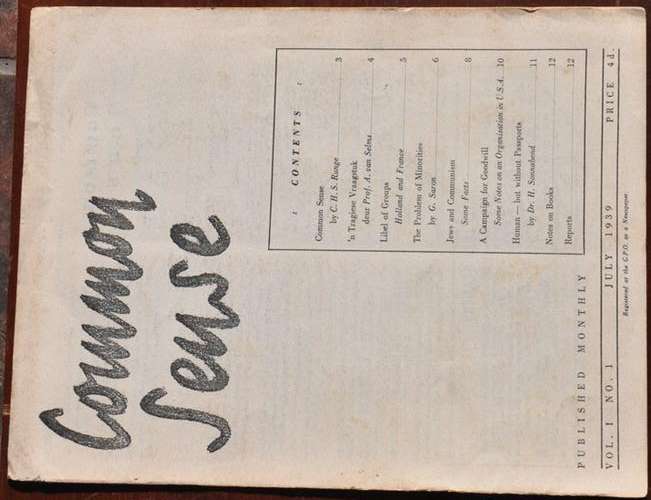 Common
Sense
CONTENTS
Common Sense
by C. H. S. Runge 3
'n Tragiese Vraagstuk
deur Prof. A. van Selms 4
Libel of Groups
Holland and France 5
The Problem of Minorities
by G. Saron 6
Jews and Communism
Some Facts 8
A Campaign for Goodwill
Some Notes on an Organisation in U.S.A. 10
Human — but without Passports
by Dr. H. Sonnabend 11
Notes on Books 12
Reports 12
PUBLISHED MONTHLY
VOL. I NO. 1 JULY 1939 PRICE 4d.
Registered at the G.P.O. as a Newspaper